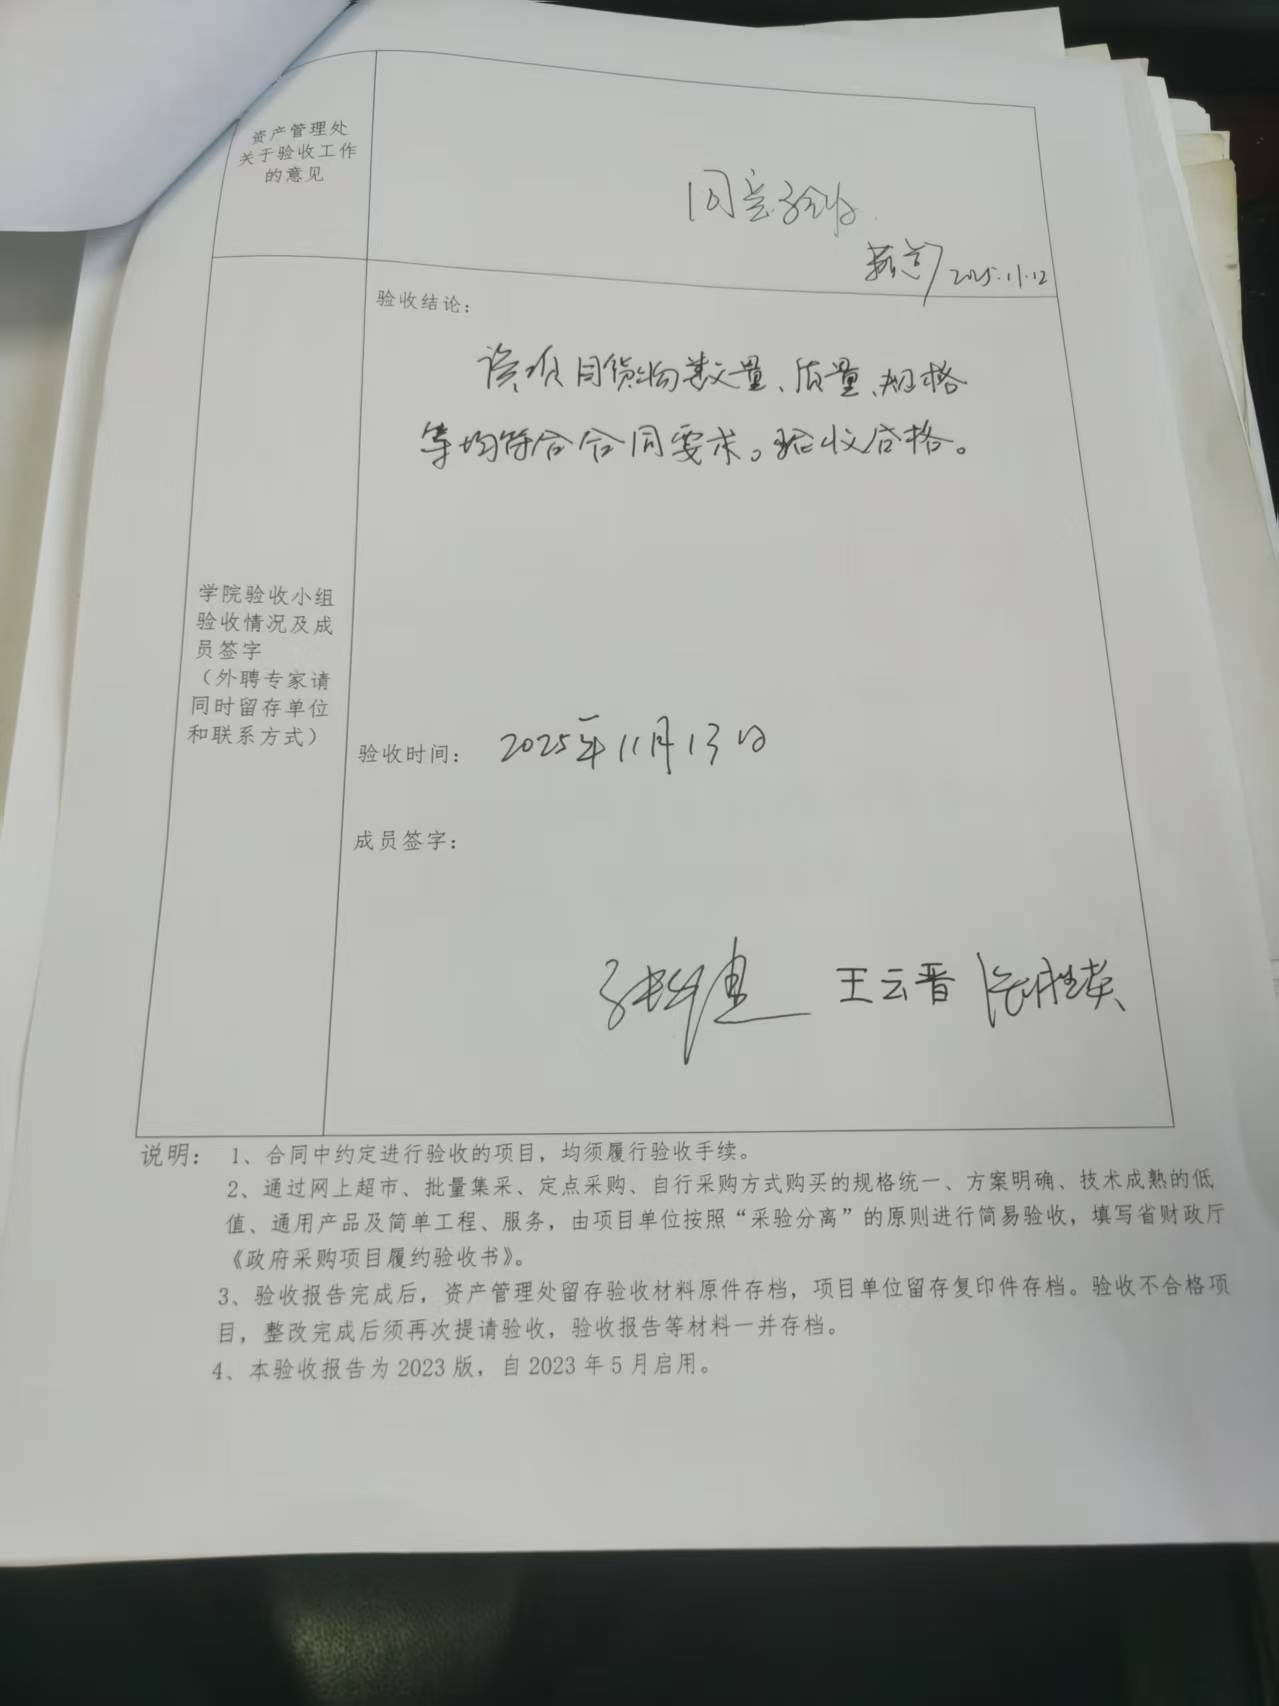 资产管理处
关于验收工作
的意见
同意验收
2025.11.12
验收结论：
该项目货物数量、质量、规格
等均符合合同要求。验收合格。
学院验收小组
验收情况及成
员签字
（外聘专家请
同时留存单位
和联系方式）
验收时间：2025年11月13日
成员签字：
王云晋 张胜英
说明：1、合同中约定进行验收的项目，均须履行验收手续。
2、通过网上超市、批量集采、定点采购、自行采购方式购买的规格统一、方案明确、技术成熟的低
值、通用产品及简单工程、服务，由项目单位按照“采验分离”的原则进行简易验收，填写省财政厅
《政府采购项目履约验收书》。
3、验收报告完成后，资产管理处留存验收材料原件存档，项目单位留存复印件存档。验收不合格项
目，整改完成后须再次提请验收，验收报告等材料一并存档。
4、本验收报告为2023版，自2023年5月启用。